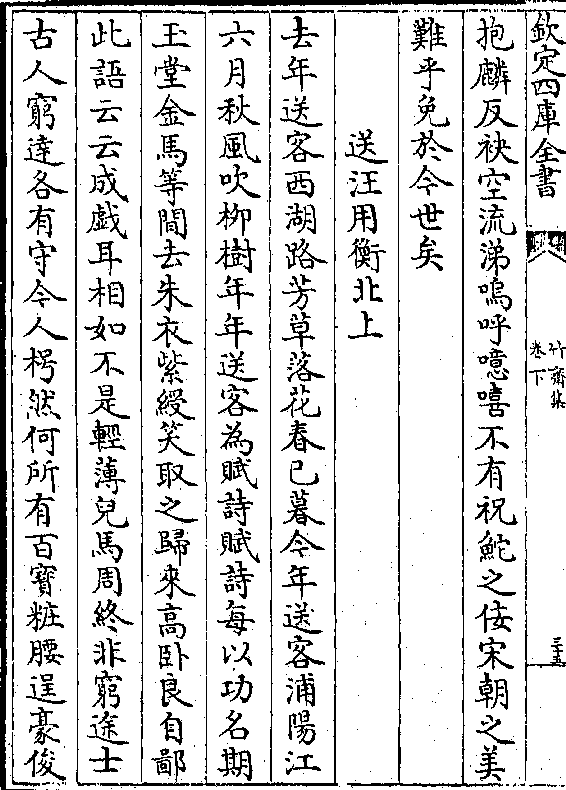 欽定四庫全書
竹齋集
卷下
三五
抱麟反袂空流涕嗚呼噫嘻不有祝鮀之佞宋朝之美
難乎免於今世矣
送汪用衡北上
去年送客西湖路芳草落花春已暮今年送客浦陽江
六月秋風吹柳樹年年送客為賦詩賦詩每以功名期
玉堂金馬等閒去朱衣紫綬笑取之歸來高卧良自鄙
此語云云成戲耳相如不是輕薄兒馬周終非窮途士
古人窮達各有守令人枵然何所有百寳粧腰逞豪俊